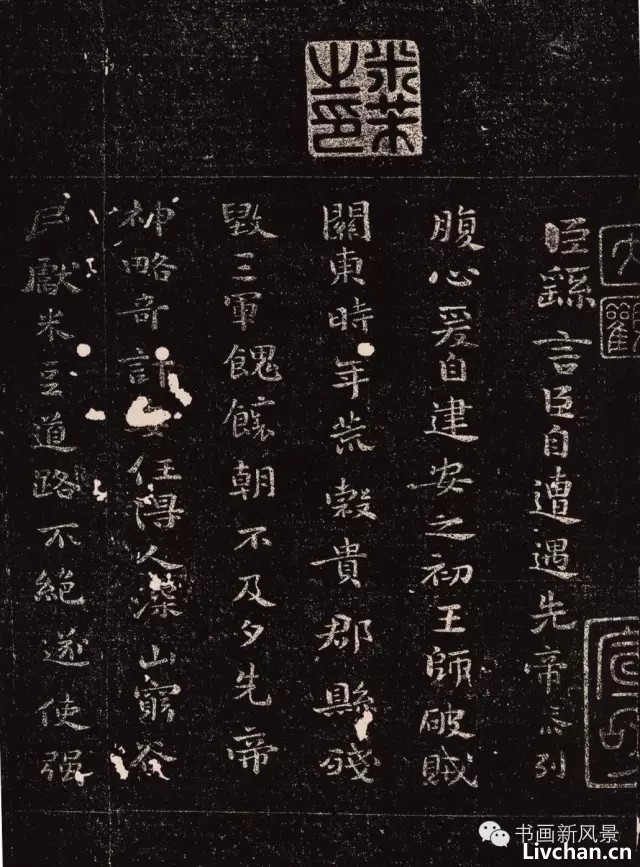 米芾之印
大觀
臣繇言臣自遭遇先帝忝列
腹心爰自建安之初王師破賊
關東時年荒穀貴郡縣殘
毀三軍餽饟朝不及夕先帝
神略奇計委任得人深山窮谷
民獻米豆道路不絕遂使强
书画新风景
Livchan.cn